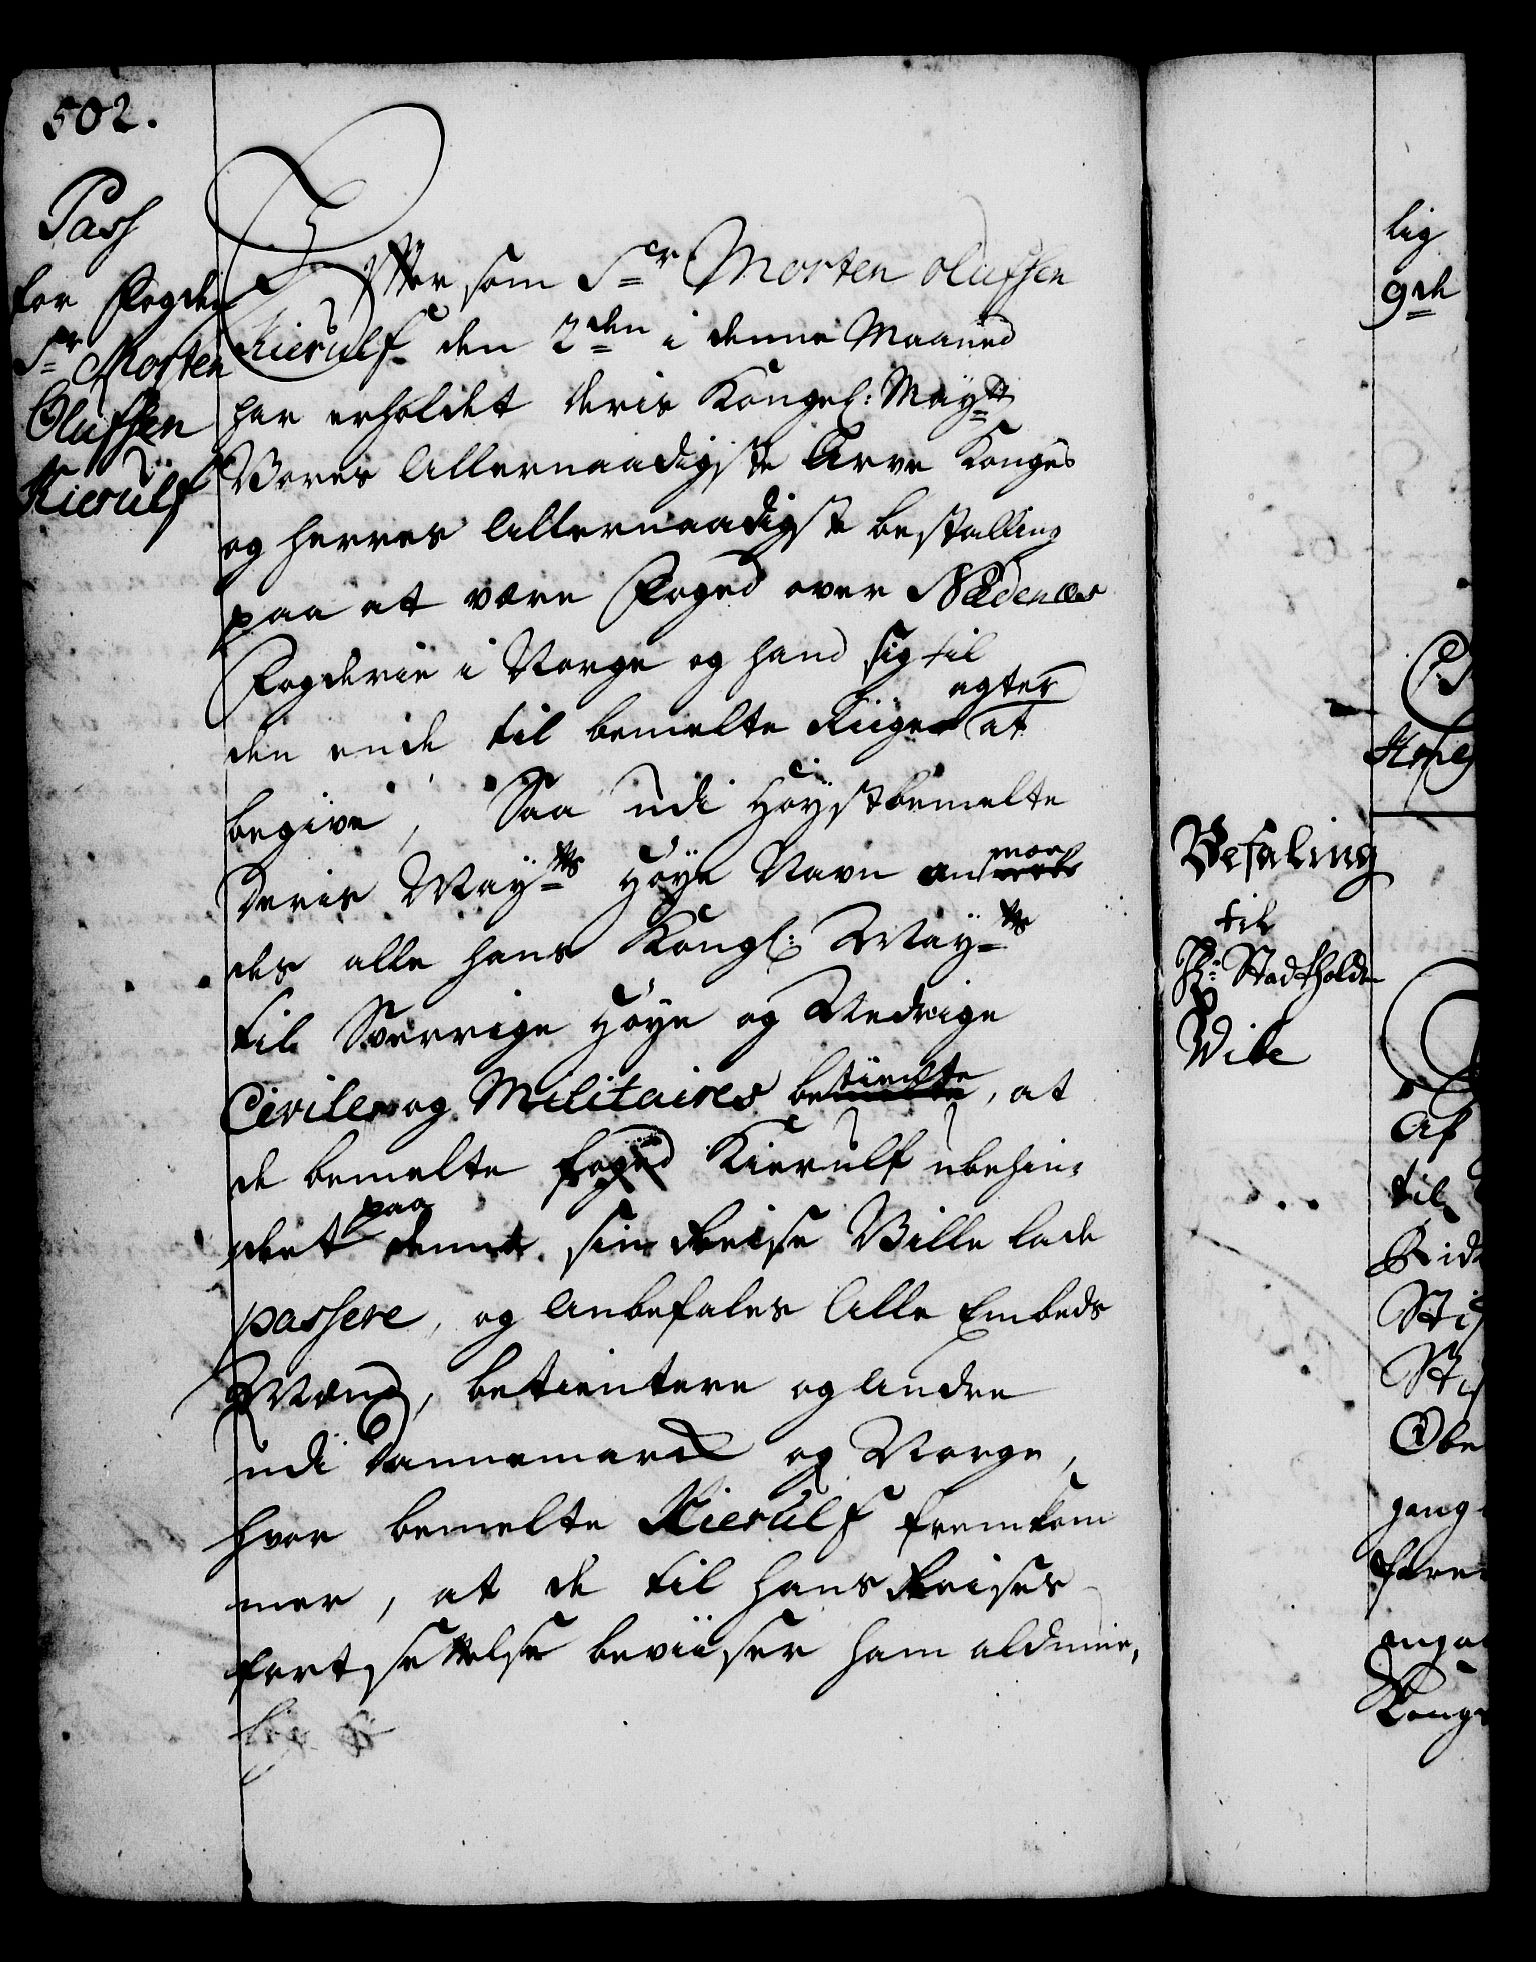 502.
Pass
for Fogden
Sr Morten
Olufsen
Kierulf
Efftersom Sr Morten Olufsen
Kierulf den 2den i denne Maaned
har erholdet deris Kongel: Mayts
Vores Allernaadigste Arve Konges
og Herres Allernaadigste bestalling
paa at være Foged over Nædenes
Fogderie i Norge og hand sig til
den ende til bemelte Riige agter at
begive, Saa udi Høystbemelte
Deris Mayts Høye Navn anmoo
des alle hans Kongl: Mayts
til Sverrige Høye og Nedrige
Civile og Militaires betiendte, at
de bemelte foged Kierulf ubehin-
dret paa denne sin Reise Ville lade
passere, og Anbefales Alle Embeds
Mænd, betientere og Andre
udi Dannemarck og Norge,
hvor bemelte Kierulf fremkom
mer, at de til hans Reises
fortsettelse beviiser ham aldmue,
lig
lig
9de
Befaling
til
Stadtholder
Vibe
Af
til
Rid
Sti
Sti
Obe
gang
Kong